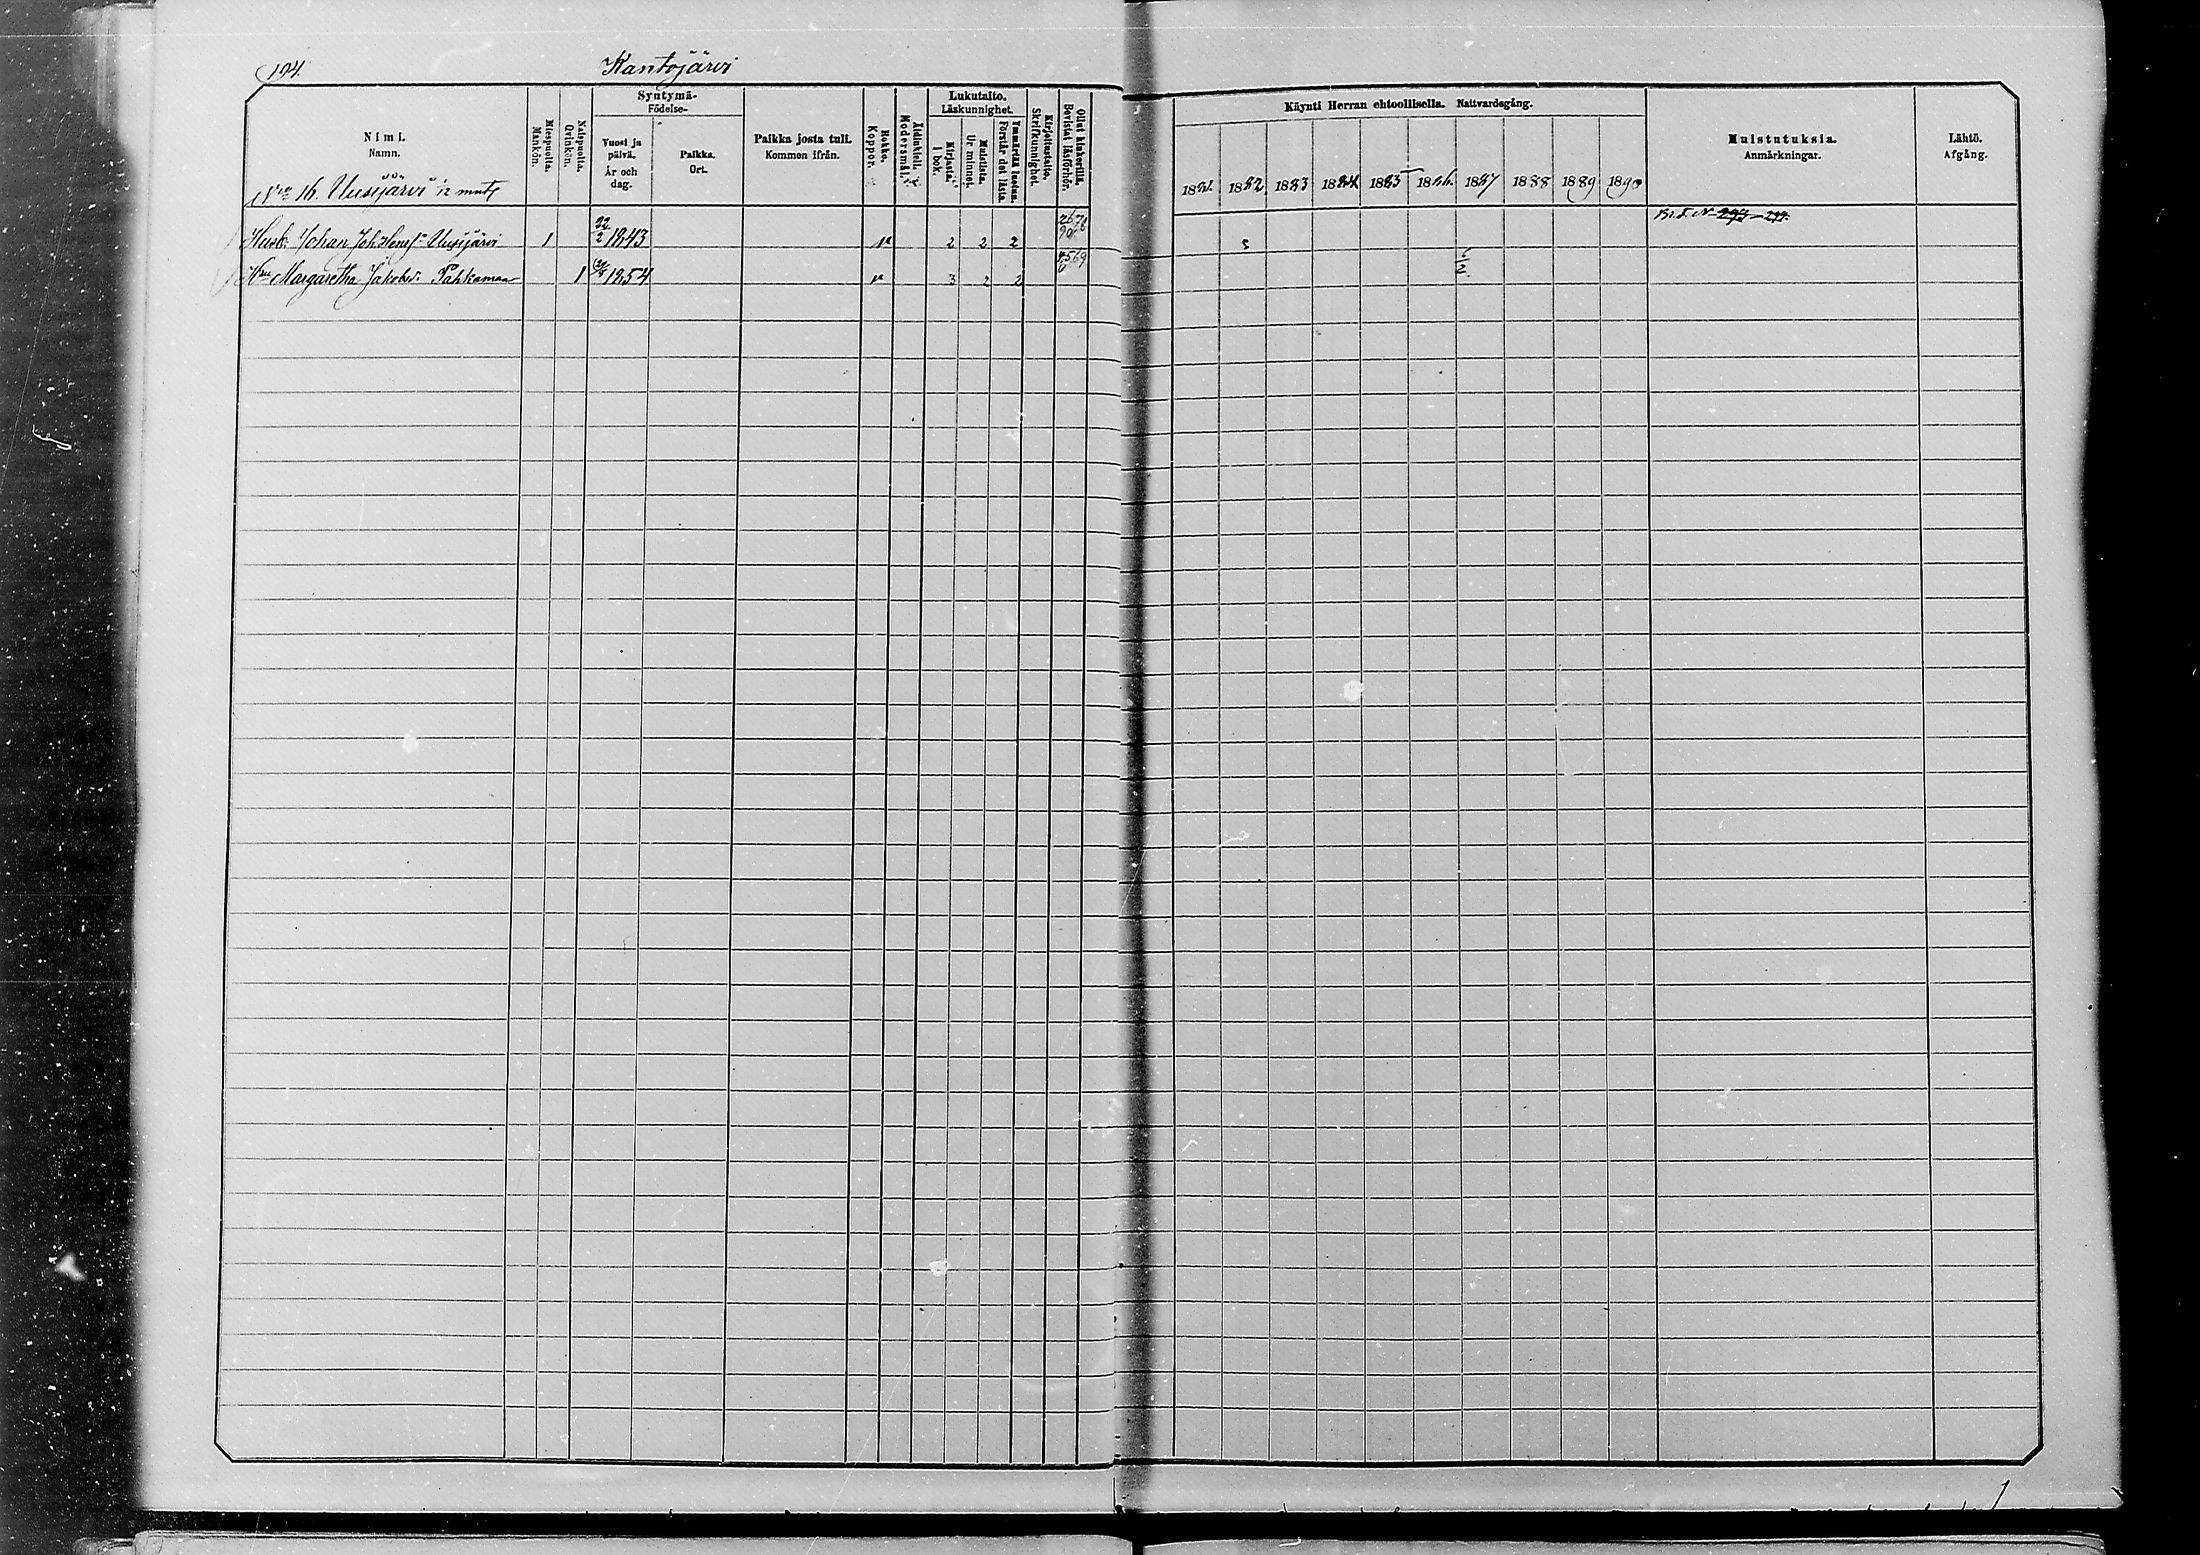 194.
Kantojärvi
Nimi.
Namn.
Miespuolta.
Mankön.
Naispuolta.
Qvinkön.
Syntymä-
Födelse-
Vuosi ja
päivä.
År och
dag.
Paikka.
Ort.
Paikka josta tuli.
Kommen ifrån.
Rokko.
Koppor.
Äidinkieli.
Modersmål.
Lukutaito.
Läskunnighet.
Kirjasta.
I bok.
Muistista.
Ur minnet.
Ymmärtää luetun.
Förstår det lästa.
Kirjoitustaito.
Skrifkunnighet.
Ollut kinkerillä.
Bevistat läsförhör.
Käynti Herran ehtoollisella. Nattvardsgång.
1881 1882 1883 1884 1885 1886 1887 1888 1889 1890
Muistutuksia.
Anmärkningar.
Lähtö.
Afgång.
16. Uusijärvi
Husb. Johan Uusijärvi 1 22/2 1843 2 2 2
Margaretha Jakobsd. Pahkamaa 1 1854 3 2 2